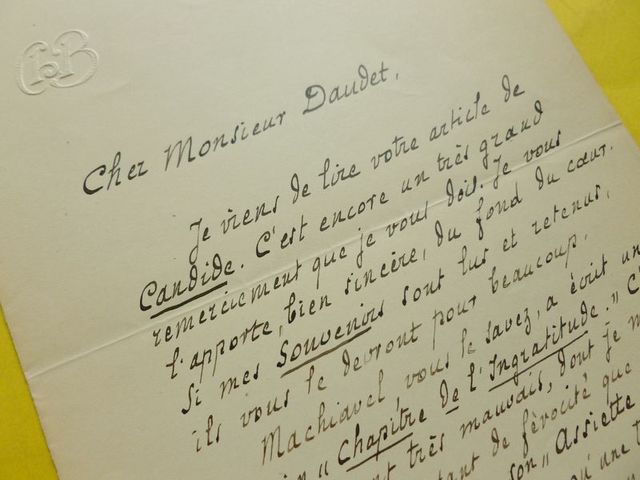 Cher Monsieur Daudet,
Je viens de lire votre article de
Candide. C'est encore un très grand
remerciement que je vous dois. Je vous
l'apporte, bien sincère, du fond du cœur.
Si mes Souvenirs sont lus et retenus,
ils vous le devront pour beaucoup.
Machiavel, vous le savez, a écrit un
"Chapitre de l'Ingratitude." C
très mauvais, dont je m
tant de férocité que
son "Assiette
qu'une t